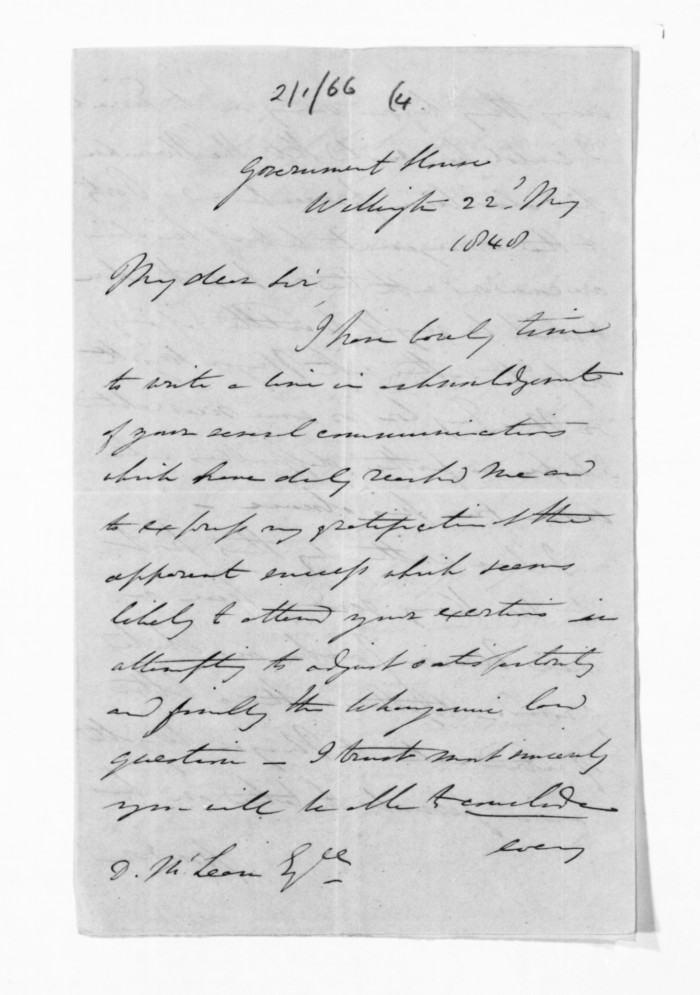 2/1/66 (4.
Government House
Wellington 22d May
1848
My dear Sir
I have barely time
to write a line in acknowledgment
of your several communications
which have duly reached me and
to express my gratification at the
apparent success which seems
likely to attend your exertions in
attempting to adjust satisfactorily
and finally the Whanganui land
question – I trust most sincerely
you will be able to conclude
every
D. McLean Esqre